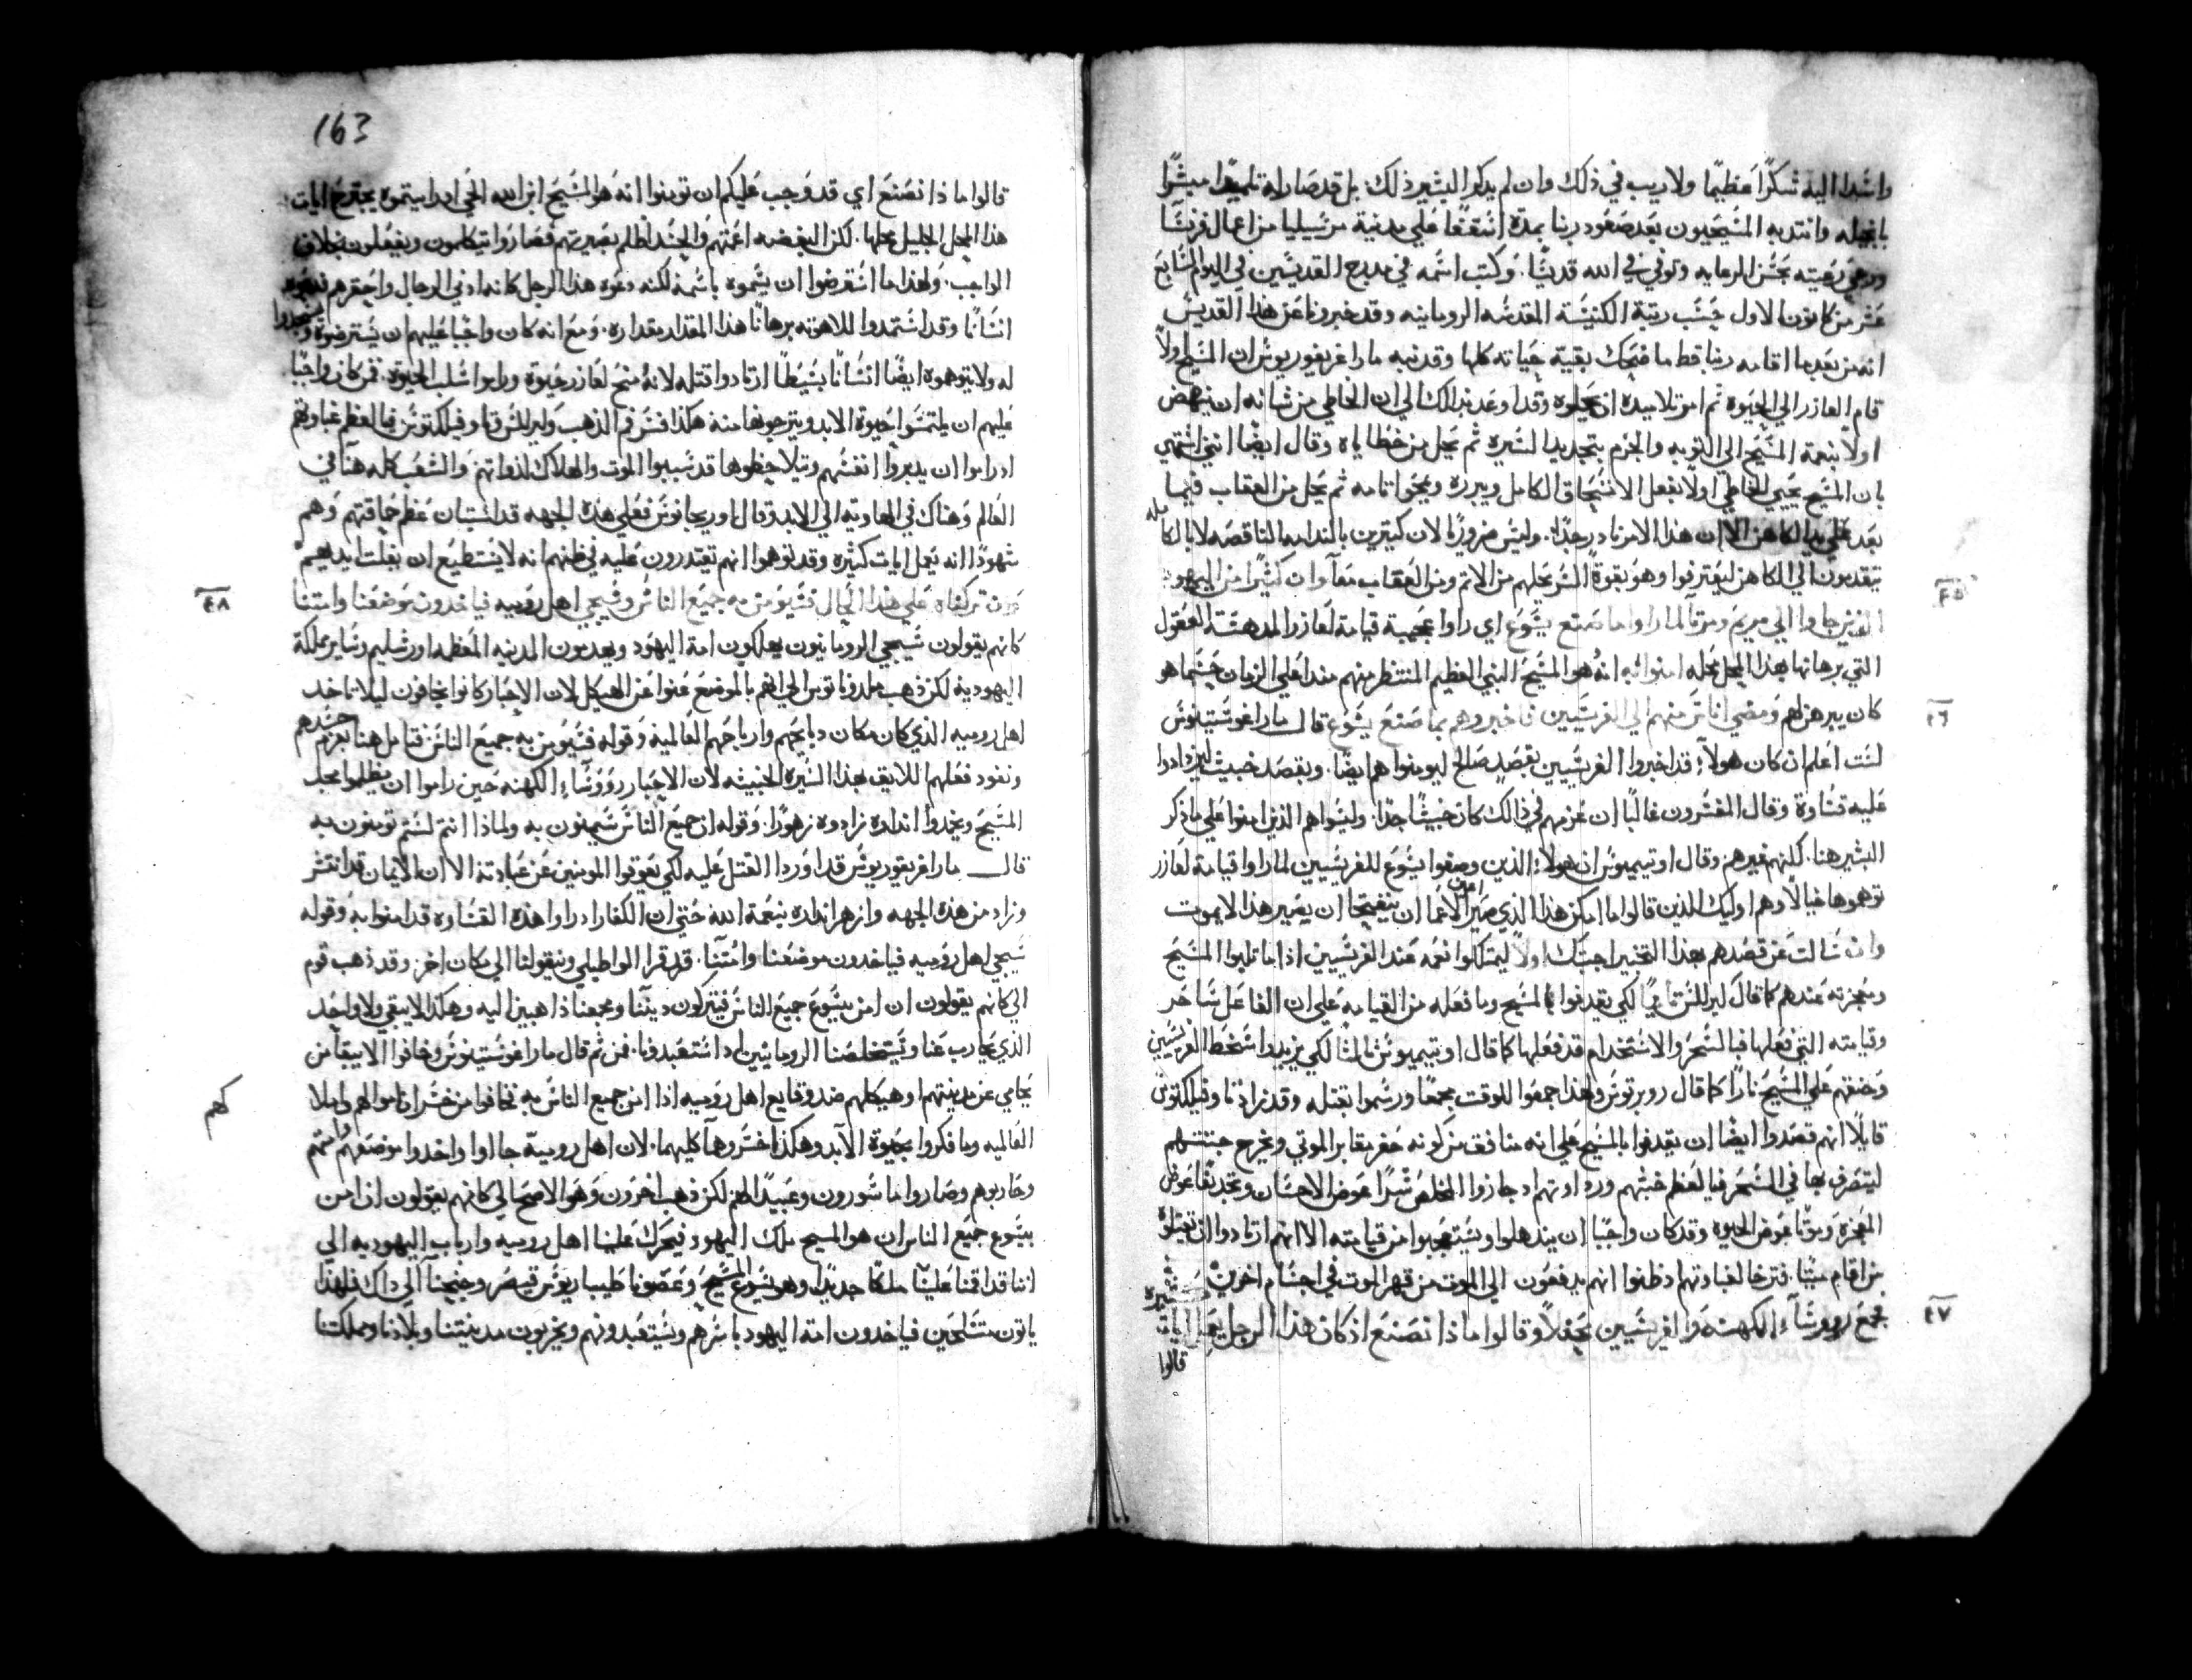 واسدا اليه شكرًا عظيمًا ولا ريب في ذلك وان لم يذكر البشير ذلك بل قد صار له تلميذًا مبشرًا
بانجيله وانتدبه المسيحيون بعد صعود ربنا بمدة اسقفًا علي مدينة مرسيليا من اعمال فرنسا
ورعي رعيته بحسن الرعايه وتوفي في الله قديسًا. وكتب اسمه في مدرج القديسين في اليوم السابع
عشر من كانون الاول حسب رتبة الكنيسة المقدسه الرومانيه وقد خبرونا عن هذا القديس
انه من بعد ما اقامه ربنا قط ما ضحك بقية حياته كلها وقد نبه مارا غريغوريوس ان المسيح اولًا
اقام العازر الي الحيوة ثم امر تلاميذه ان يحلوه وقد اوعد بذلك الي ان الخاطي من شانه ان ينهض
اولًا بنعمة المسيح الي التوبه والجزم بتجديد السيره ثم يحل من خطاياه وقال ايضًا
بان المسيح يحيي الخاطي اولًا بفعل الانسحاق الكامل ويبرره ويمحوا اثامه ثم يحل من العقاب فيما
بعد علي يد الكاهن الا ان هذا الامر نادر جدًا. وليس ضروريًا لان كثيرين بالندامه الناقصه لا بالكامله
يتقدمون الي الكاهن ليعترفوا وهو بقوة السر يحلهم من الاثم ومن العقاب معًا وان كثيرًا من اليهود
الذين جاوا الي مريم ومرتا لما راوا ما صنع يسوع اي راوا عجيبة قيامة لعازر المدهشة العقول
التي برهانها بهذا المحل محله امنوا به انه هو المسيح النبي العظيم المنتظر منهم منذ اعلي الزمان حسبما هو
كان يبرهن لهم ومضي اناس منهم الي الفريسيين فاخبروهم بما صنع يسوع قال مارا غوستينوس
لست اعلم ان كان هولاء قد اخبروا الفريسيين بقصد صالح ليومنوا هم ايضًا. وبقصد خبيث ليزدادوا
عليه قساوة وقال المفسرون غالبًا ان عزمهم في ذالك كان خبيثًا جدًا. وليسوا هم الذين امنوا علي ما ذكر
البشير هنا. لكنهم غيرهم وقال اوتيميوس ان هولاء الذين وصفوا يسوع للفريسيين لما راوا قيامة لعازر
توهموها خيالًا وهم اوليك الذين قالوا ما امكن هذا الذي صير اعين الاعما ان ينفتحا ان يصير هذا لا يموت
وان سالت عن قصدهم بهذا التخبير اجبتك اولًا ليمتلكوا نعمه عند الفريسيين اذا ما ثلبوا المسيح
ومعجزته عندهم كما قال ليرللس ثانيًا لكي يقدفوا بالمسيح وما فعله من القيامه علي ان الفاعل ساحر
وقيامته التي فعلها فبالسحر والاستخدام قد فعلها كما قال اوتيميوس ثالثًا لكي يزيدوا سخط الفريسيين
وضغنهم علي المسيح نارًا كما قال روبرتوس ولهذا جمعوا للوقت مجمعًا ورسموا بقتله وقد زادنا وفيلكتوس
قايلًا انهم قصدوا ايضًا ان يقدفوا بالمسيح علي انه منافق من كونه حفر مقابر الموتي ويخرج جثثهم
ليتصرف بها في السحر فيا لعظم خبثهم ورداوتهم اد جازوا المخلص شرًا عوض الاحسان وتجديفًا عوض
المعجزة وموتًا عوض الحيوة وقد كان واجبًا ان يندهلوا ويستعجبوا من قيامته الا انهم ارتادوا ان يقتلوا
من اقام ميتًا. فترخا لغباوتهم اد ظنوا انهم يدفعون الي الموت من قهر الموت في اجسام اخرين
٤٥
٤٦
٤٧
مجمع رووساء الكهنة والفريسيين محفلًا وقالوا ماذا نصنع اذ كان هذا الرجل يعمل ايات كثيره
قالوا
163
قالوا ماذا نصنع اي قد وجب عليكم ان تومنوا انه هو المسيح ابن الله الحي اد رايتموه يجترح ايات
هذا المحل الجليل محلها. لكن البغضه اعمتهم والحسد اظلم بصيرتهم فصاروا يتكلمون ويفعلون بخلاف
الواجب. ولهذا ما استرضوا ان يسموه باسمه لكنه دعوه هذا الرجل كانه ادني الرجال واحقرهم
انسانًا وقد استمدوا للاهوته برهانًا هذا المقدار مقداره. ومع انه كان واجبًا عليهم ان يسترضوه ويسجدوا
له ولا يتوهموه ايضًا انسانًا بسيطًا ارتادوا قتله لانه منح لعازر حيوة وراموا سلب الحيوة ممن كان واجبًا
عليهم ان يلتمسوا حيوة الابد ويترجوها منه هكذا فسر فم الذهب وليرللس وفيلكتوس فيا لعظم غباوتهم
اد راموا ان يدبروا انفسهم وكيلا يخظوها قد سببوا الموت والهلاك لذواتهم والشعب كله هنا في
العالم وهناك في الهاوية الي الابد وقال اوريجانوس فعلي هذه الجهه قد استبان عظم حماقتهم وهم
شهودًا انه يعمل ايات كثيره وقد توهموا انهم يقتدرون عليه في ظنهم انه لا يستطيع ان يفلت ايديهم
ون تركناه علي هذا الحال فسيومن به جميع الناس وسيجي اهل روميه فياخدون موضعنا وامتنا
٤٨
كانهم يقولون سيجي الرومانيون يهلكون امة اليهود ويعدمون المدينه المعظمه اورشليم وساير مملكة
اليهودية لكن ذهب ملدوناتوس الي انهم بالموضع عنوا عن الهيكل لان الاحبار كانوا يخافون ليلا تاخد
اهل روميه الذي كان مكان دبايحهم وارباحهم العالمية وقوله فسيومن به جميع الناس فتامل هنا عزم حسدهم
ونفود فعلهم اللايق بهذا السيرة الخبيثه لان الاحبار ورووساء الكهنه حين راموا ان يظلموا مجد
المسيح ويخمدوا انذاره زادوه زهورًا. وقوله ان جميع الناس سيومنون به ولماذا انتم لستم تومنون به
قال مارا غريغوريوس قد اوردا القتل عليه لكي يعوقوا المومنين عن عبادته الا ان الايمان قد انتشر
وزاد من هذه الجهه وازهر انداره بنعمة الله حتي ان الكفار ادراوا هذه القساوه قد امنوا به وقوله
سيجي اهل روميه فياخدون موضعنا وامتنا. قد قرا الواطيلي وينقولنا الي مكان اخر. وقد ذهب قوم
الي كانهم يقولون ان امن بيسوع جميع الناس فيتركون ديننا ومجمعنا ذاهبين اليه وهكذا لا يبقي ولا واحد
الذي يحارب عنا ويستخلصنا الرومانيين اد استعبدونا. فمن ثم قال مارا غوستينوس وخافوا الا يبقا من
يحامي عن مدينتهم وهيكلهم ضد وقايع اهل روميه اذا امن جميع الناس به فخافوا من خسران اموالهم واملاكهم
العالميه وما فكروا بحيوة الابد وهكذا خسروها كليهما. لان اهل رومية جااوا واخدوا موضعهم وامتهم
وحاربوهم وصاروا ماسورون وعبيدًا لهم لكن ذهب اخرون وهو الاصح الي كانهم يقولون ان امن
بيسوع جميع الناس ان هو المسيح ملك اليهود فيحرك علينا اهل روميه وارباب اليهوديه الي
اننا قد اقمنا علينا ملكًا جديدًا وهو يسوع المسيح وعصونا طيباريوس قيصر وجنحنا الي داك فلهذا
ياتون متسلحين فياخدون امة اليهود باسرهم ويستعبدونهم ويخربون مدينتنا وبلادنا ومملكتنا